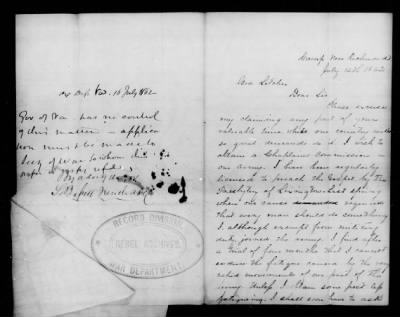 Ex Dept Va. 16 July 1862
Gov of Va. has no control
of this matter - applica
tion must be made to
Secy of War to whom this
RECORD DIVISION
REBEL ARCHIVES
WAR DEPARTMENT
Camp Near Richmond
July 14th 1862
Gov Letcher
Dear Sir
Please excuse
my claiming any part of your
valuable time while our country
so good demands it. I wish to
obtain a Chaplains commission in
our army. I have been regularly
licensed to preach the Gospel by the
Presbytery of Lexington last spring
when our cause required
that every man should do something
I although exempt from military
duty joined the army. I find after
a trial of four months that I cannot
endure the fatigue caused by the
movements of our part of the
army
fatiguing. I shall soon have to ask